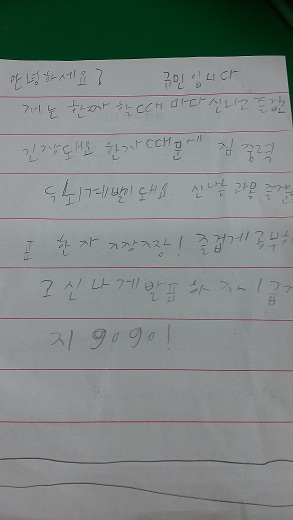 안녕하세요? 규민입니다
저는 한짜 할때 마다 신나고 즐겁
긴장돼요 한자 때문에 집중력
두뇌계발이돼요. 신나는 과목 즐거운
표 한자 자장자장! 즐겁게 공부하
고 신나게발표하자! 급
지 9090!